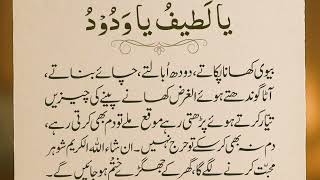 یا لَطِیفُ یا وَدُوْدُ
بیوی کھانا پکاتے، دودھ اُبالتے، چائے بناتے،
آٹا گوندھتے ہوئے الغرض کھانے پینے کی چیزیں
تیار کرتے ہوئے پڑھتی رہے موقع ملے تو دم بھی کرتی رہے،
دم نہ بھی کر سکے تو حرج نہیں۔ ان شاء اللہ الکریم شوہر
محبت کرنے لگے گا، گھر کے جھگڑے ختم ہو جائیں گے۔